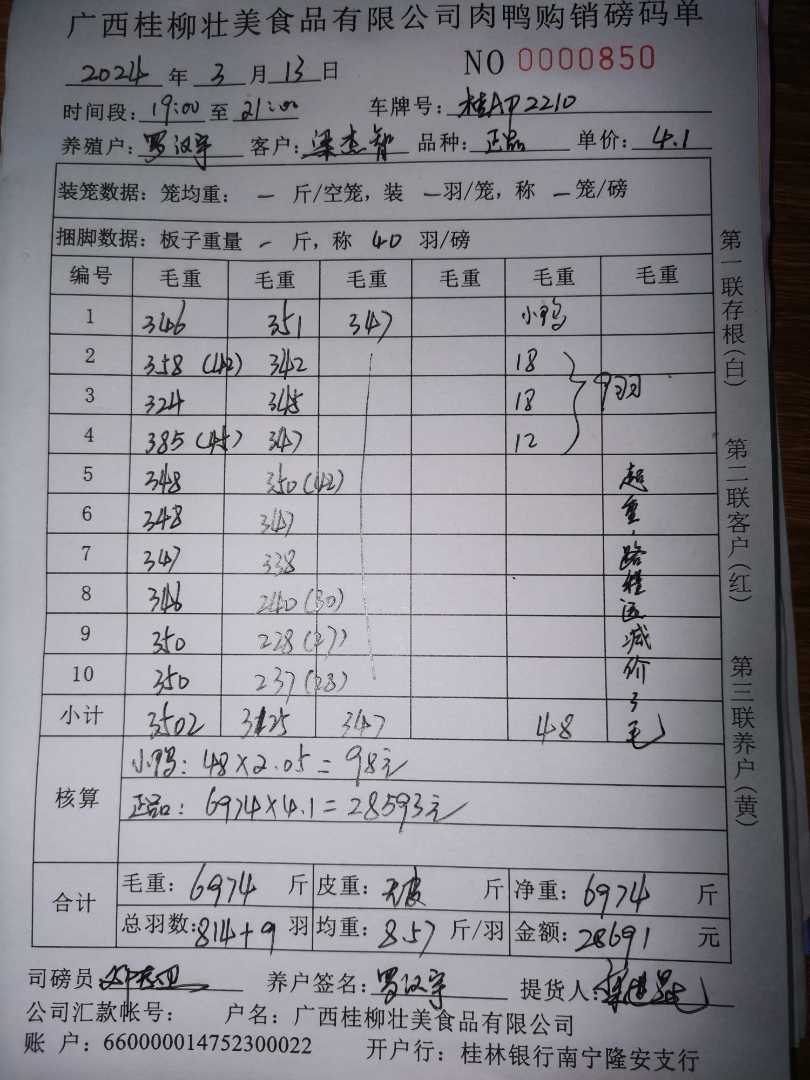 广西桂柳壮美食品有限公司肉鸭购销磅码单
2024 年 3 月 13 日 NO 0000850
时间段: 19:00 至 21:00 车牌号: 桂AP2210
养殖户: 罗汉宇 客户: 梁杰智 品种: 正品 单价: 4.1
装笼数据: 笼均重: - 斤/空笼, 装 -羽/笼, 称 -笼/磅
捆脚数据: 板子重量 - 斤, 称 40 羽/磅
编号 毛重 毛重 毛重 毛重 毛重 毛重
1 346 351 347 小鸭
2 358 (42) 342 18
3 324 345 18 9羽
4 385 (45) 347 12
5 348 350 (42)
6 348 347
7 347 338
8 346 240 (30)
9 350 228 (27)
10 350 237 (28)
超重,路程远减价3毛
小计 3502 3125 347 48
核算 小鸭: 48×2.05=98元
正品: 6974×4.1=28593元
合计 毛重: 6974 斤 皮重: 无皮 斤 净重: 6974 斤
总羽数: 814+9 羽 均重: 8.57 斤/羽 金额: 28691 元
司磅员 养户签名: 罗汉宇 提货人:
公司汇款帐号: 户名: 广西桂柳壮美食品有限公司
账 户: 660000014752300022 开户行: 桂林银行南宁隆安支行
第一联存根(白) 第二联客户(红) 第三联养户(黄)